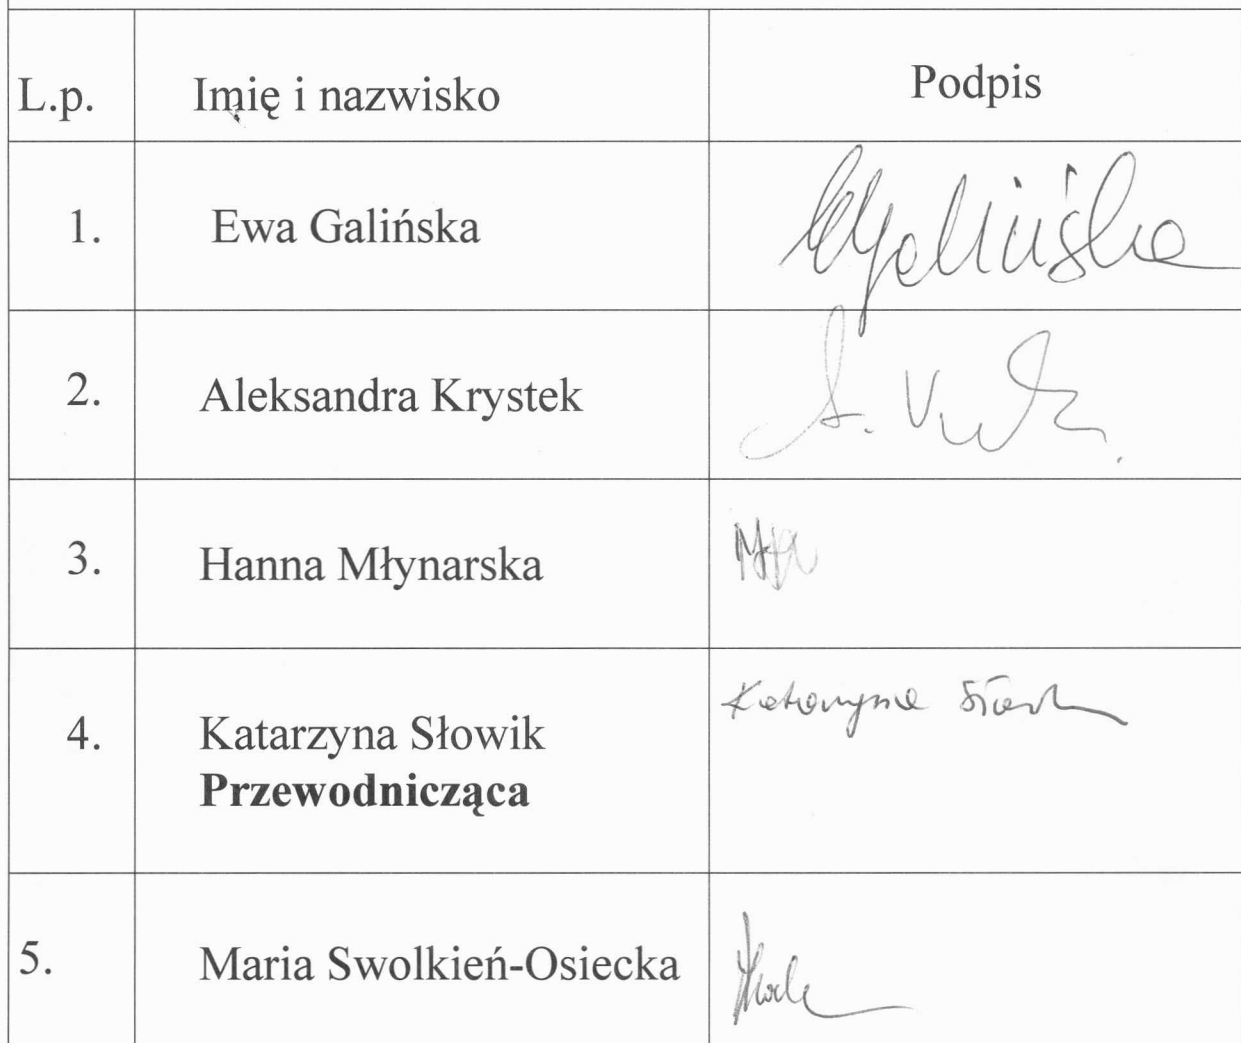 L.p. Imię i nazwisko Podpis
1. Ewa Galińska EGalińska
2. Aleksandra Krystek
3. Hanna Młynarska
4. Katarzyna Słowik Katarzyna
Przewodnicząca
5. Maria Swolkień-Osiecka